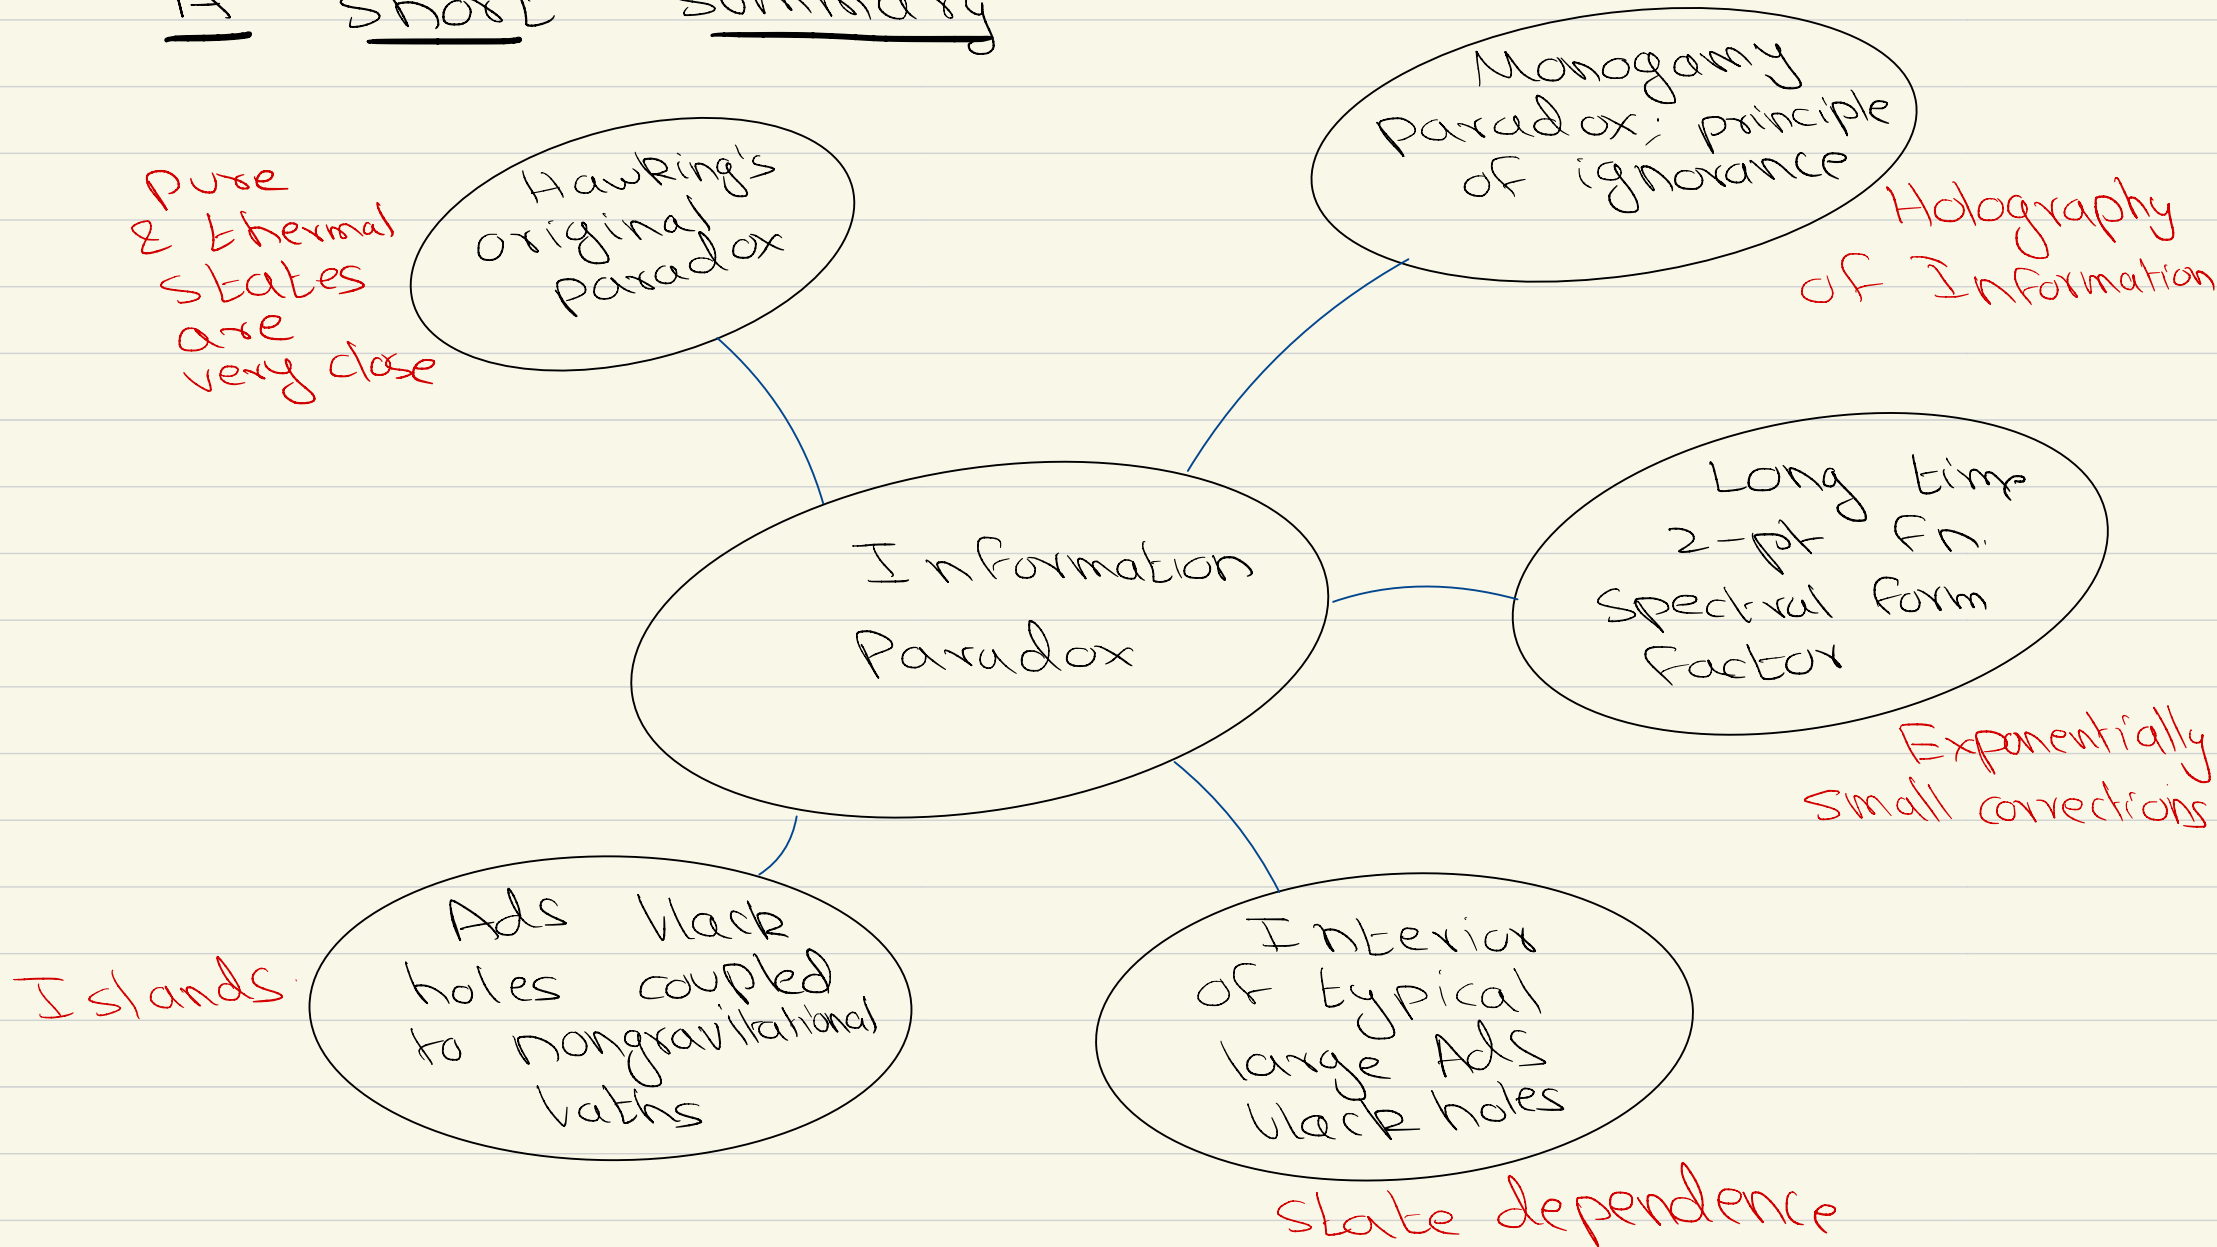 A short summary
Hawking's
original
paradox
pure
& thermal
states
are
very close
Monogamy
paradox; principle
of ignorance
Holography
of Information
Information
Paradox
Long time
2-pt fn.
spectral form
factor
Exponentially
small corrections
Ads black
holes coupled
to nongravitational
baths
Islands
Interior
of typical
large Ads
black holes
state dependence